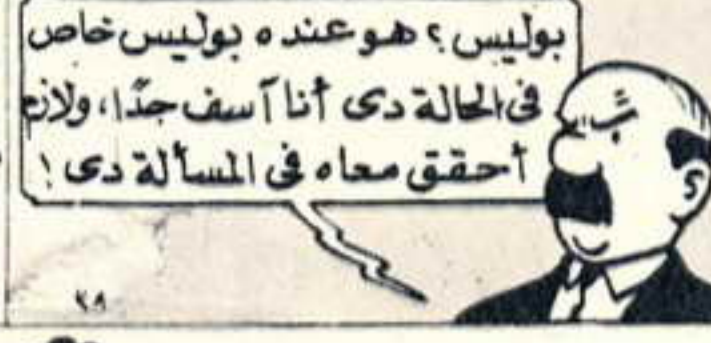 بوليس؟ هو عنده بوليس خاص
فى الحالة دى أنا آسف جدًا، ولازم
أحقق معاه فى المسألة دى!
٢٨